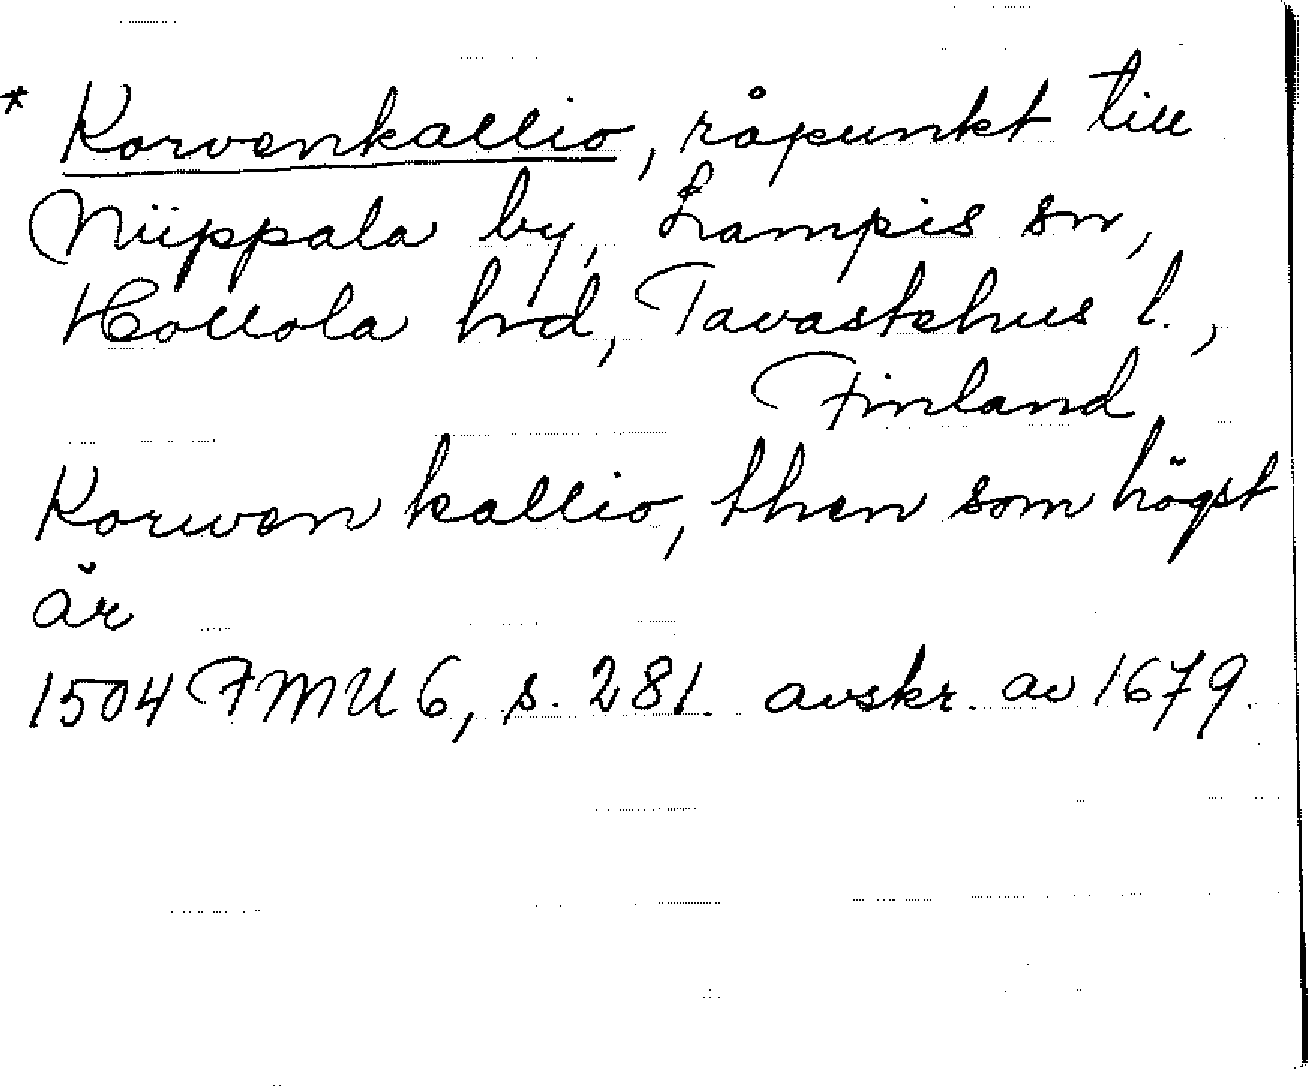 * Korvenkallio, råpunkt till
Niippala by, Lampis sn,
Hollola hrd, Tavastehus l.,
Finland
Korwen kallio, then som högst
är
1504 FMU 6, s. 281. avskr. av 1679.